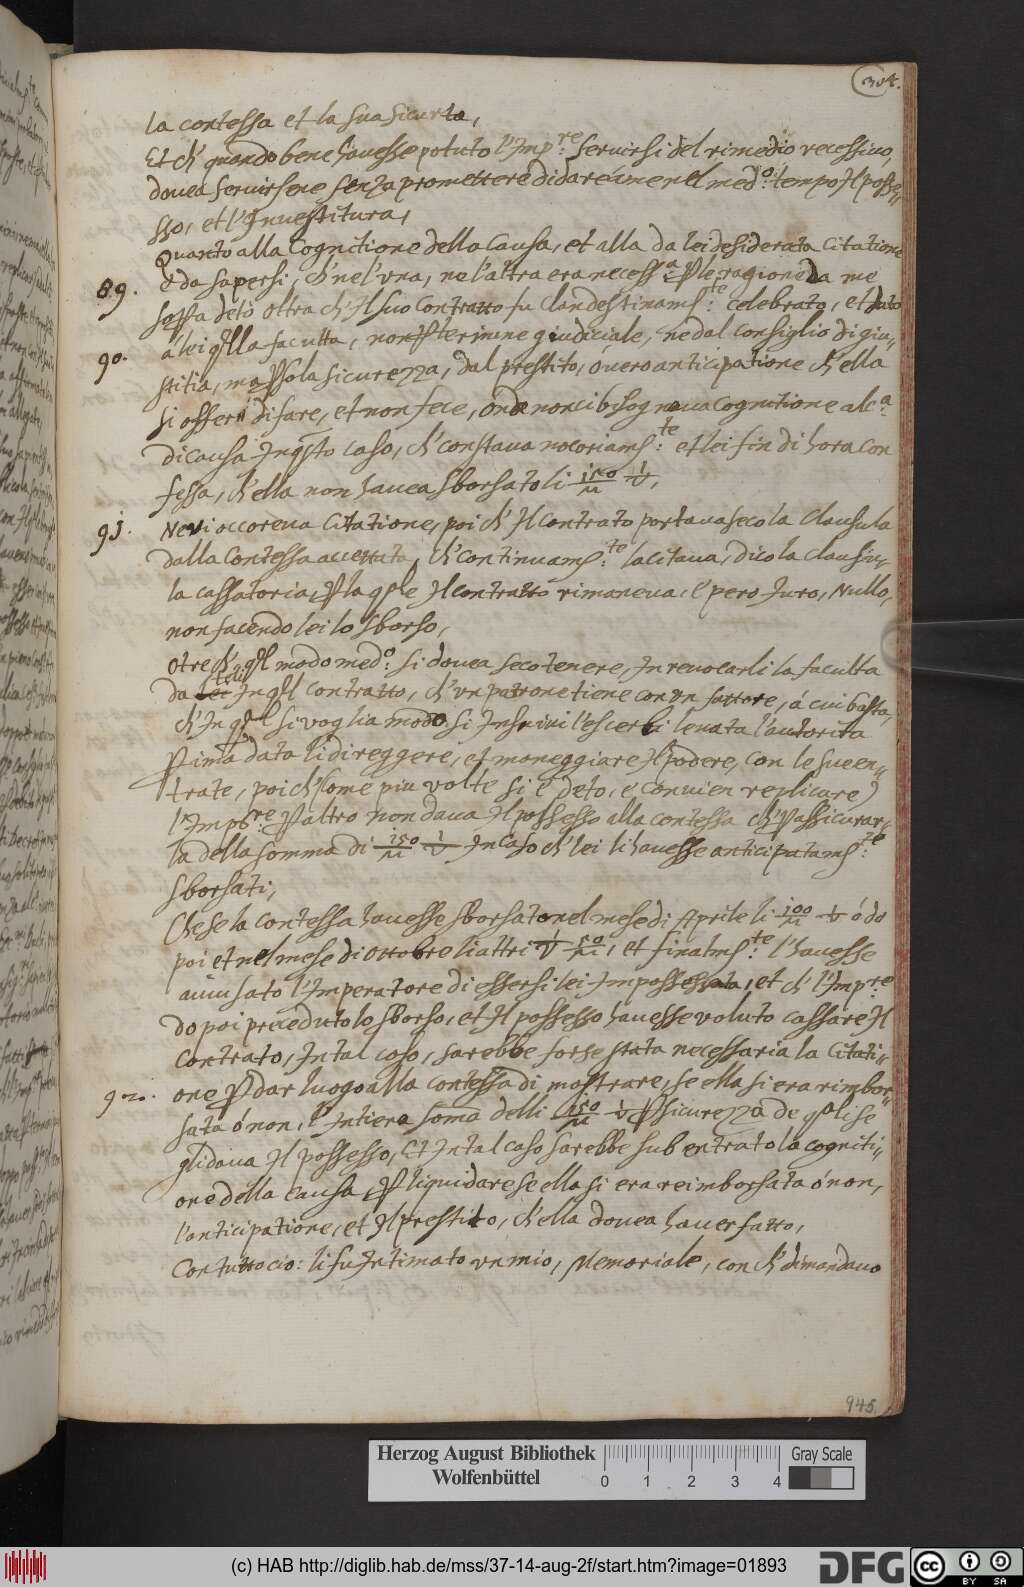 304.
la contessa et la sua sicurta,
Et ch' quando bene havesse potuto l'Imp:re servirsi del rimedio recessivo,
dovea servirsene senza promettere di dare il med:o tempo Il posse=
sso, et l'Investitura,
Quanto alla Cognitione della Causa, et alla da lei desiderata Citatione
89. è da sapersi, ch' ne l'una, ne l'altra era necess:a P le ragione da me
sopra deto oltra ch' Il suo Contratto fu Clandestinams:te celebrato, et dato
90. á lei qlla facutta, non P termine giudiciale, ne dal consiglio di giu=
stitia, ma P sola sicurezza, dal prestito, overo anticipatione ch'ella
si offerí di fare, et non fece, onde non ci bisognava Cognitione alc:a
di causa In qsto caso, ch' constava notoriams:te et lei fin di hora con
fessa, ch'ella non havea sborsato li 150/M V,
91. Ne vi occoreva Citatione, poi ch' Il contrato portava seco la Clausula
dalla contessa accettata, ch' continuams:te la citava, dico la Clausu=
la cassatoria, P la qle Il contratto rimaneva, è pero Iuro, Nullo,
non facendo lei lo sborso,
Otre ch' ql modo med:o si dovea seco tenere, In revocarli la faculta
da In ql contratto, ch' un patrone tiene con un fattore, á cui basta,
ch' In ql si voglia modo si Insinui l'esserli levata l'autorita
Prima data li di reggere, et maneggiare Il podere, con le sue en=
trate, poi ch' (come piu volte si è deto, è convien replicare)
l'Imp:re P altro non dava Il possesso alla contessa ch' P assicurar=
la della somma di 150/M V In caso ch' lei li havesse anticipatams:te
sborsati,
Che se la contessa havesse sborsato nel mese di Aprile li 100/M V ó do
poi et nel mese di Ottobre li altri V 50/M, et finalms:te l'havesse
avisato l'Imperatore di essersi lei Impossessata, et ch' l'Imp:re
dopoi preceduto lo sborso, et Il possesso havesse voluto cassare Il
Contrato, In tal caso, sarebbe forse stata necessaria la Citati=
92. one P dar luogo alla contessa di mostrare, se ella si era rimbor=
sata ó non, l'Intiera soma delli 150/M V P sicurezza de qli se
gli dava Il possesso, Et In tal caso sarebbe sub entrato la cogniti=
one della causa, P liquidare se ella si era reimborsata ó non,
l'anticipatione, et Il prestito, ch'ella dovea haver fatto,
Con tutto cio: li fu Intimato un mio, Memoriale, con ch' dimandavo
945.
Herzog August Bibliothek
Wolfenbüttel
0 1 2 3 4
Gray Scale
(c) HAB http://diglib.hab.de/mss/37-14-aug-2f/start.htm?image=01893
DFG
cc BY SA